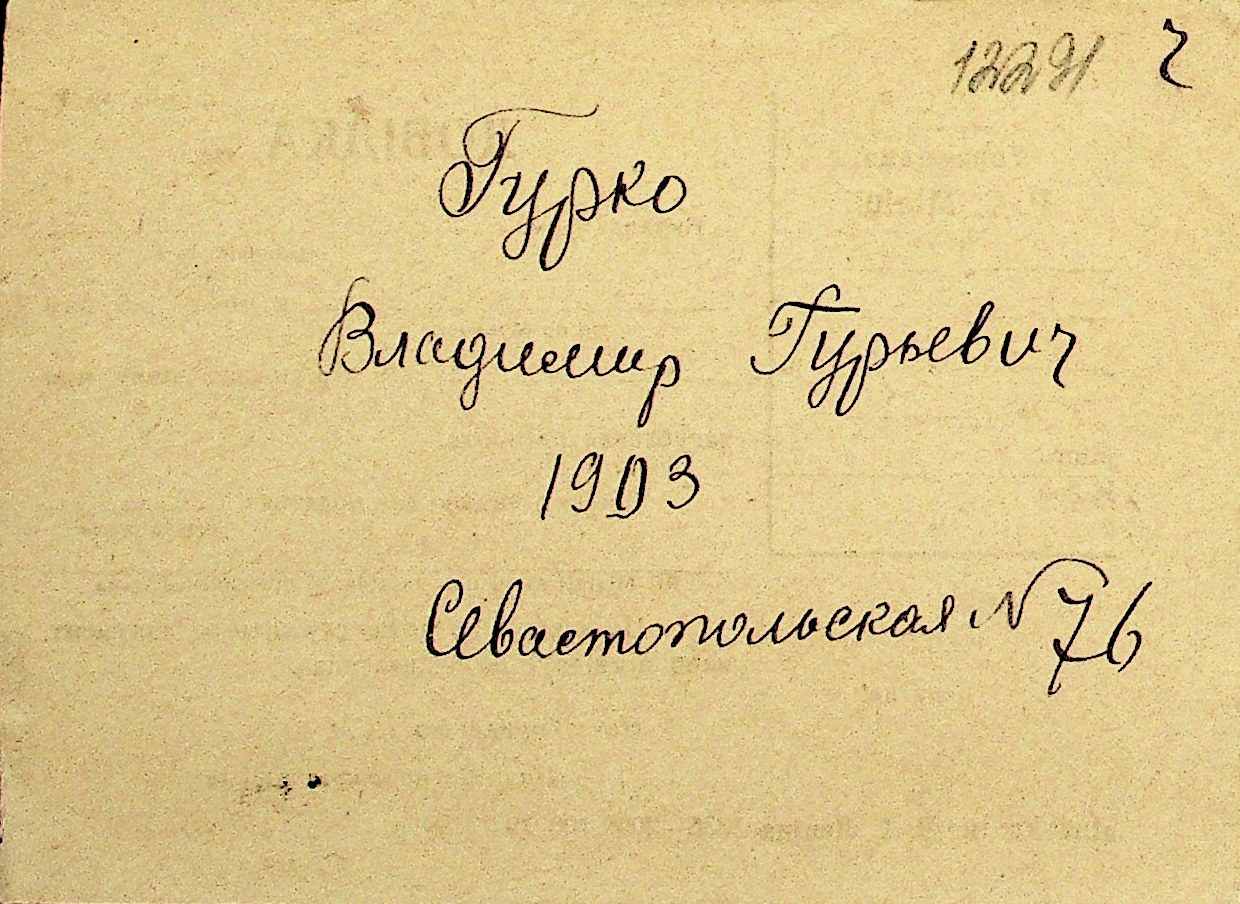 12291 ч
Гурко
Владимир Гурьевич
1903
Севастопольская N 76